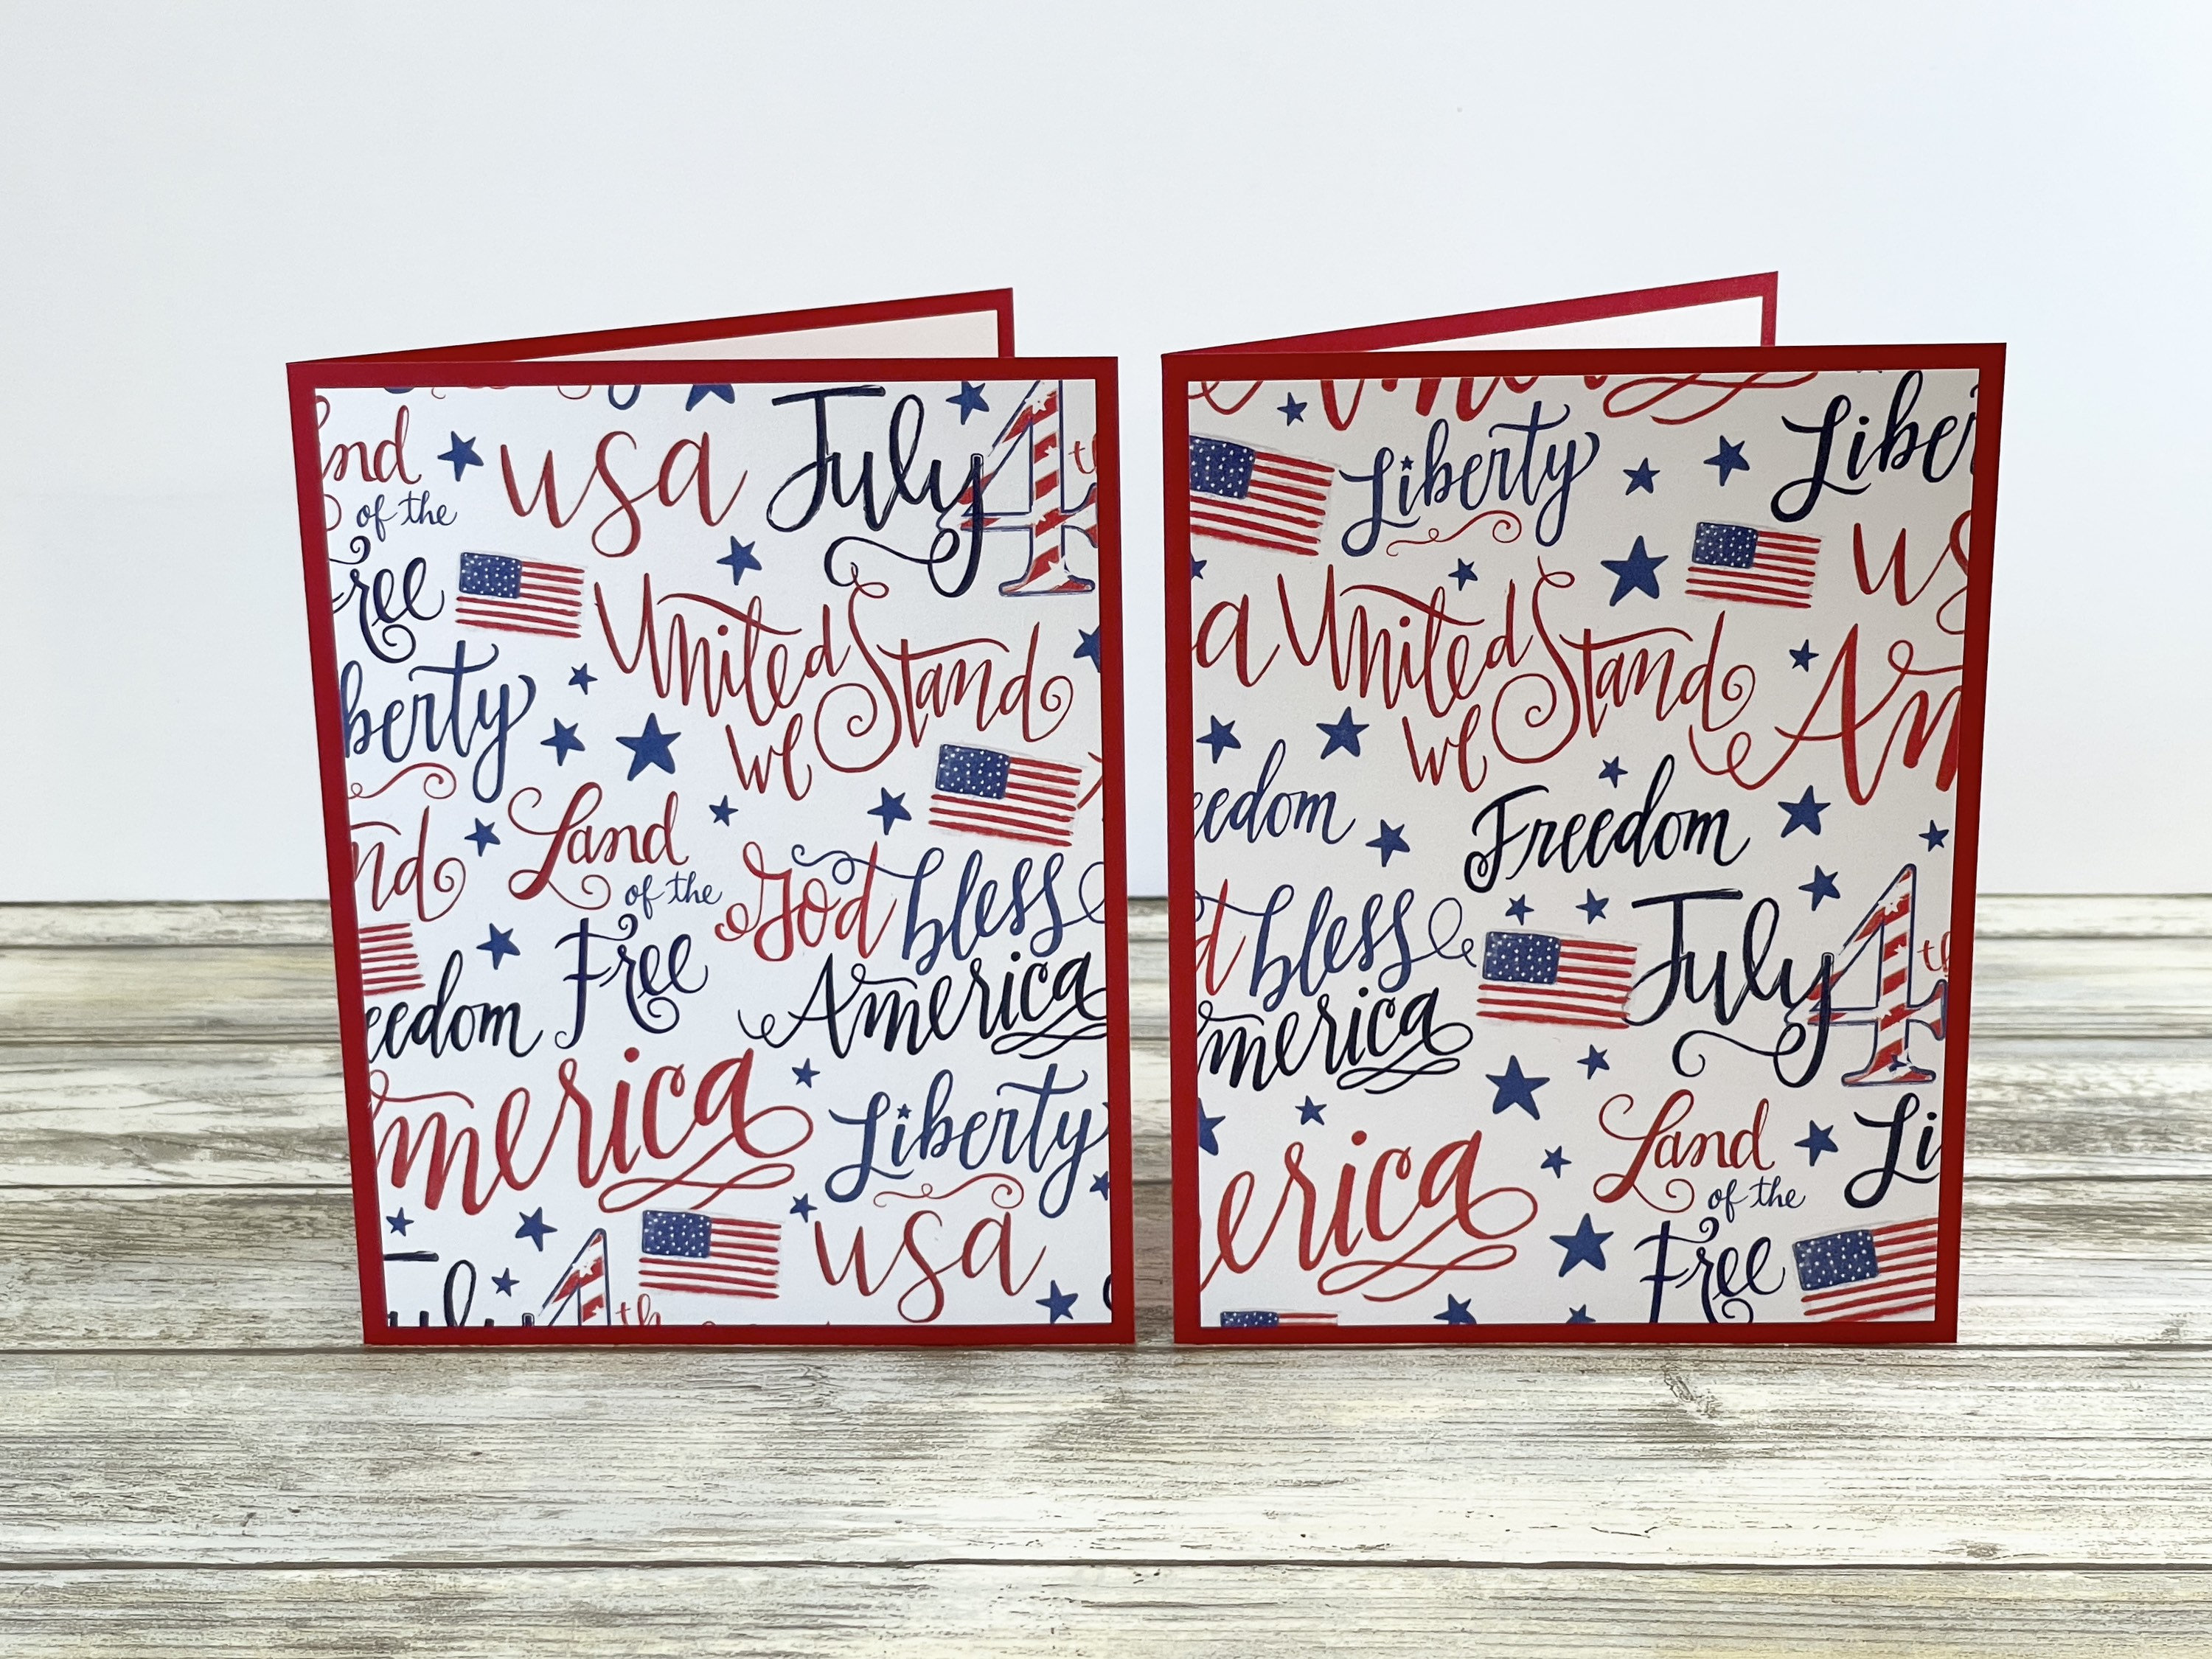 and
of the
ree
usa
July 4th
United
we Stand
berty
Land
of the
Free
nd
God bless
America
eedom
merica
Liberty
usa
July 4th
Liberty
Liber
us
a
United
we Stand
Am
eedom
Freedom
d bless
merica
July 4th
erica
Land
of the
Free
Li